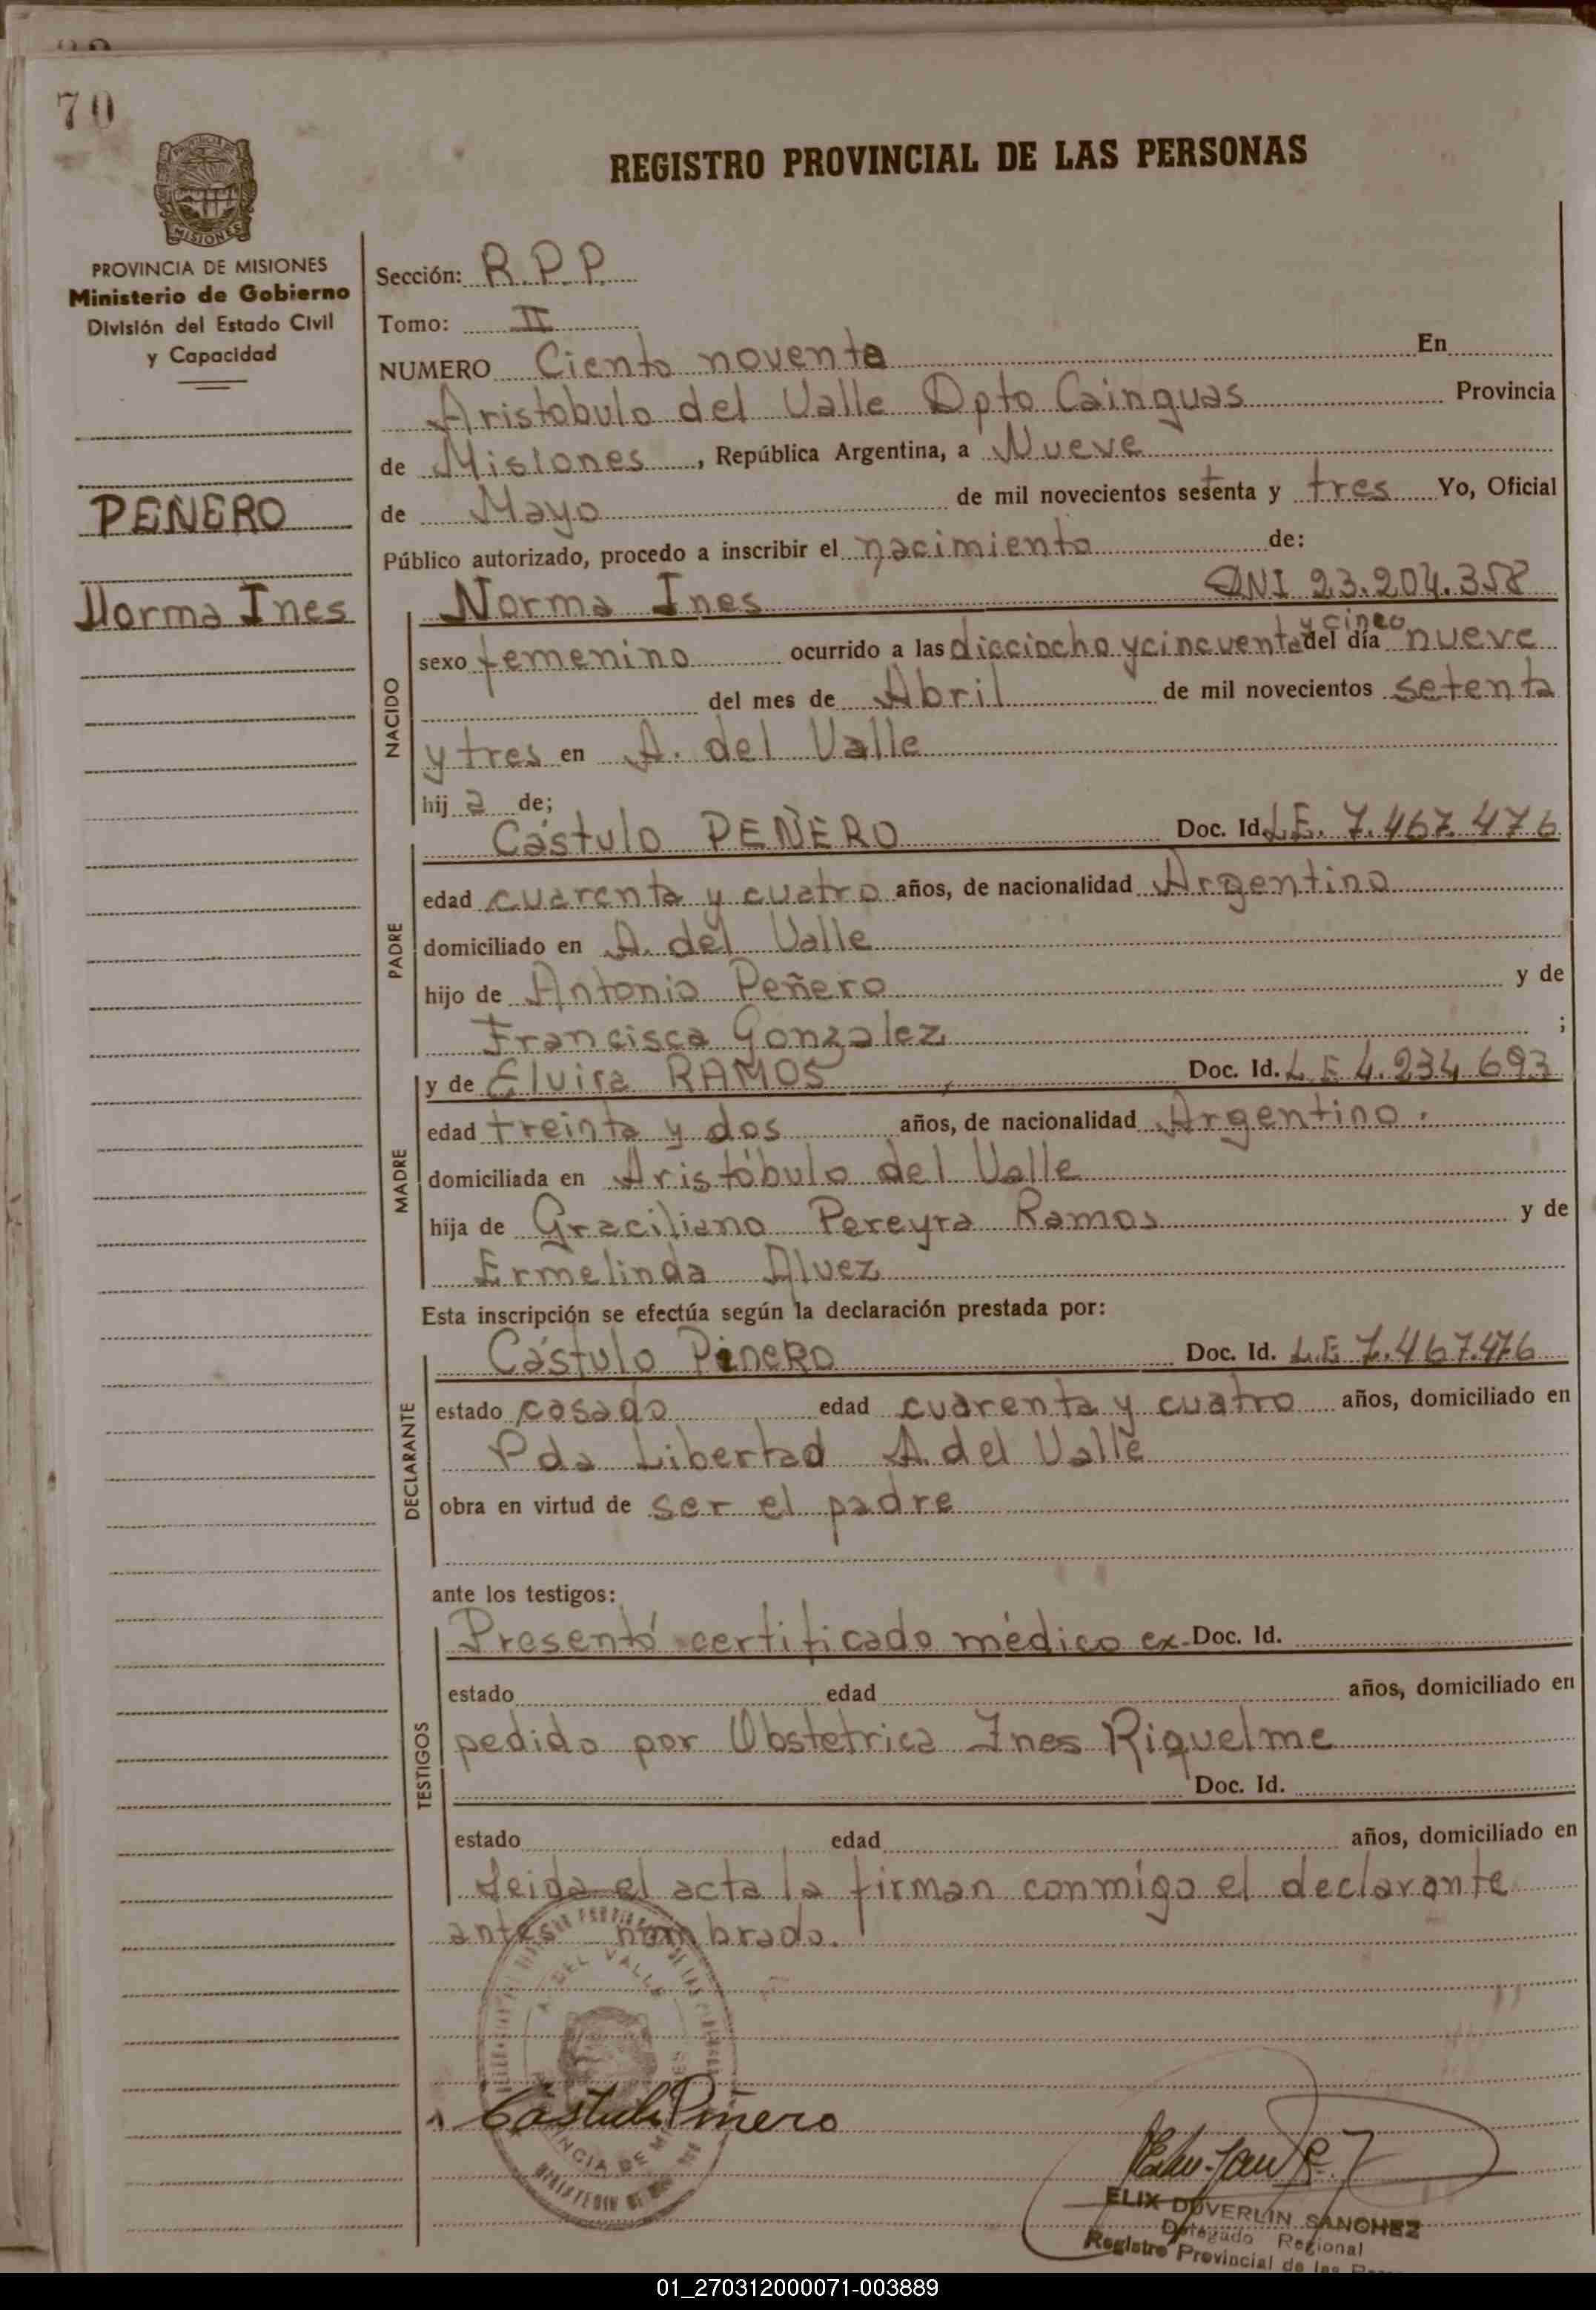 70
REGISTRO PROVINCIAL DE LAS PERSONAS
MISIONES
PROVINCIA DE MISIONES
Ministerio de Gobierno
División del Estado Civil
y Capacidad
PEÑERO
Norma Ines
Sección: R.P.P.
Tomo: II
NUMERO Ciento noventa En
Aristobulo del Valle Dpto Cainguas Provincia
de Misiones, República Argentina, a Nueve
de Mayo de mil novecientos setenta y tres Yo, Oficial
Público autorizado, procedo a inscribir el nacimiento de:
NACIDO
Norma Ines DNI 23.204.358
y cinco
sexo femenino ocurrido a las dieciocho y cincuenta del día nueve
del mes de Abril de mil novecientos setenta
y tres en A. del Valle
hij a de;
PADRE
Cástulo PEÑERO Doc. Id. L.E. 7.467.476
edad cuarenta y cuatro años, de nacionalidad Argentino
domiciliado en A. del Valle
hijo de Antonio Peñero y de
Francisca Gonzalez ;
MADRE
y de Elvira RAMOS Doc. Id. L.E 4.234.693
edad treinta y dos años, de nacionalidad Argentino.
domiciliada en Aristóbulo del Valle
hija de Graciliano Pereyra Ramos y de
Ermelinda Alvez
Esta inscripción se efectúa según la declaración prestada por:
DECLARANTE
Cástulo PiñeRO Doc. Id. L.E 7.467.476
estado casado edad cuarenta y cuatro años, domiciliado en
Pda Libertad A. del Valle
obra en virtud de ser el padre
ante los testigos:
TESTIGOS
Presentó certificado médico ex- Doc. Id.
estado edad años, domiciliado en
pedido por Obstetrica Ines Riquelme
Doc. Id.
estado edad años, domiciliado en
Leida el acta la firman conmigo el declarante
antes nombrado.
A. DEL VALLE
Cástulo Piñero
ELIX DUVERLIN SANCHEZ
Delegado Regional
Registro Provincial de las
01_270312000071-003889